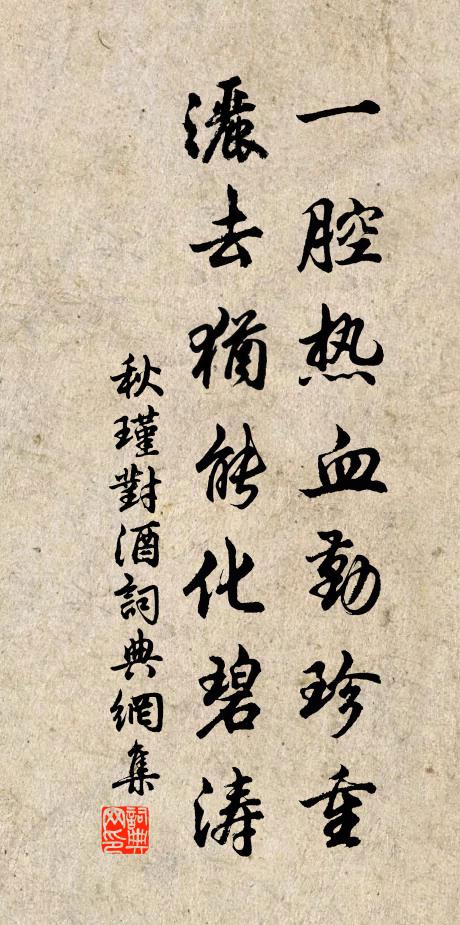 一腔热血勤珍重
灑去猶能化碧涛
秋瑾對酒詞典網集
詞典网印